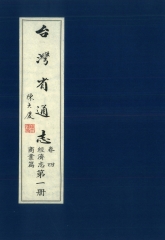 台灣省通志
陳大慶
卷四
經濟志
商業篇
第一冊